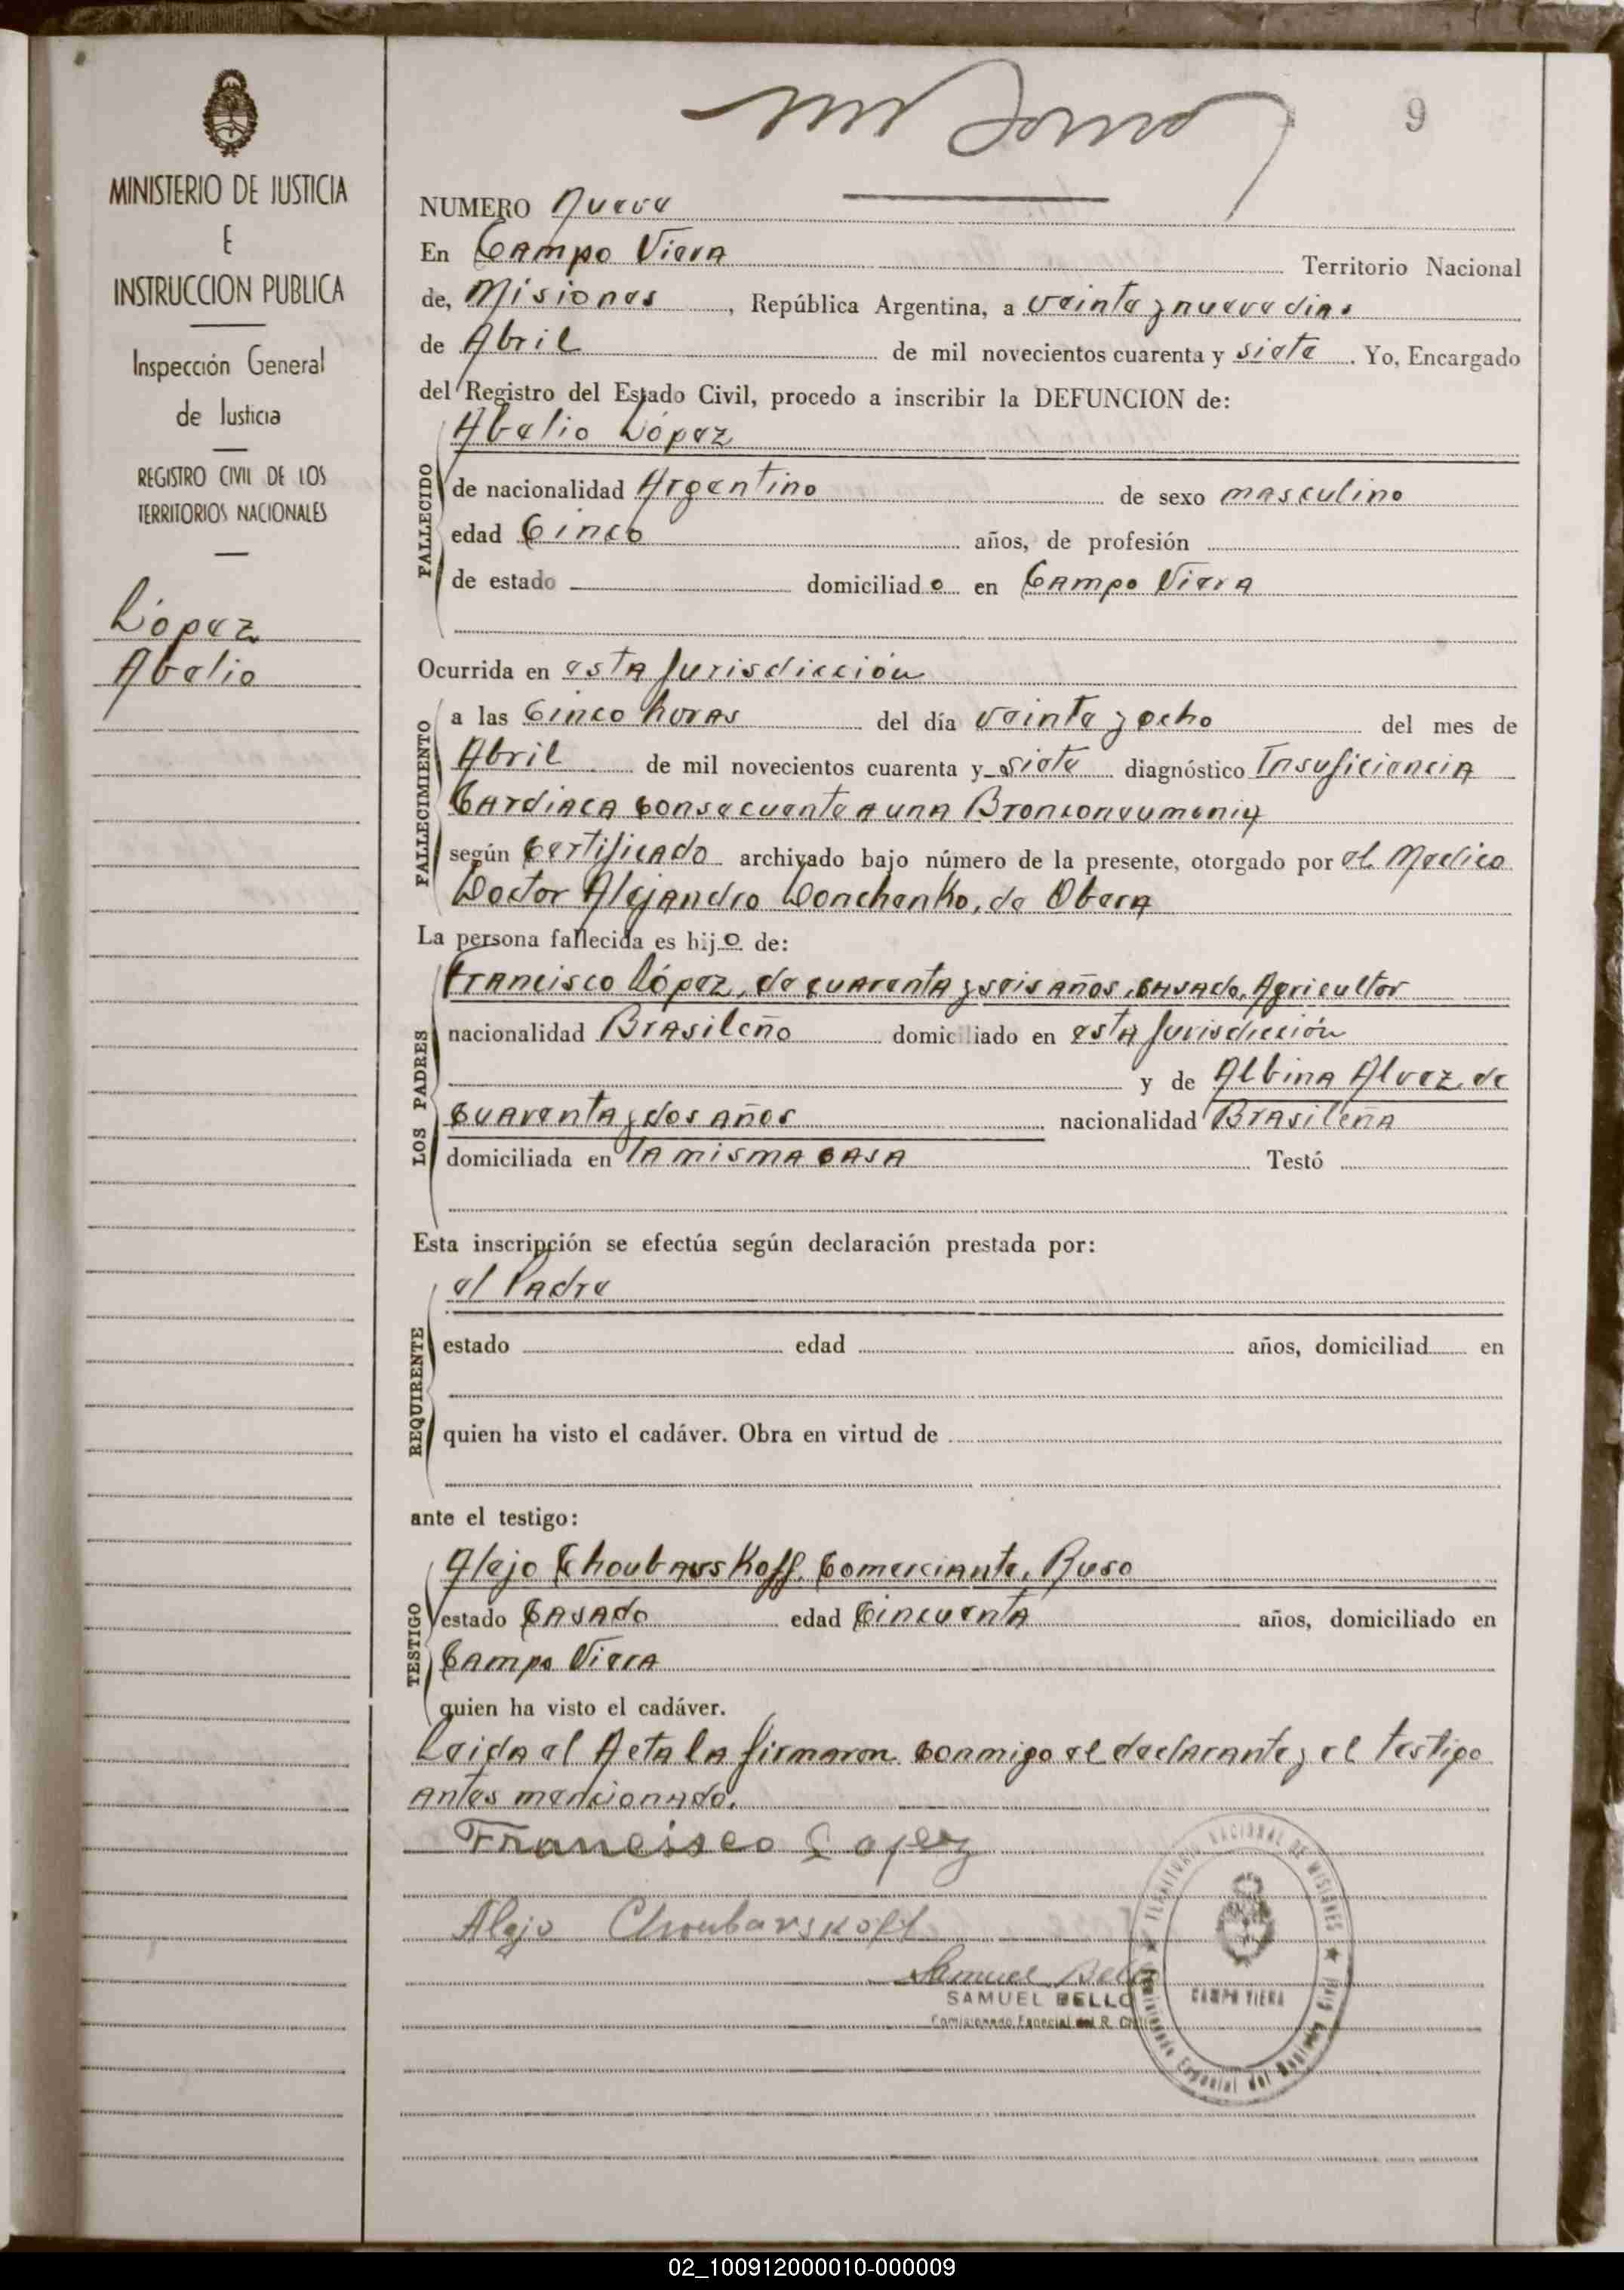 9
MINISTERIO DE JUSTICIA
E
INSTRUCCION PUBLICA
Inspección General
de Justicia
REGISTRO CIVIL DE LOS
TERRITORIOS NACIONALES
López
Abelio
NUMERO Nueve
En Campo Viera Territorio Nacional
de, Misiones, República Argentina, a veinte y nueve dias
de Abril de mil novecientos cuarenta y siete. Yo, Encargado
del Registro del Estado Civil, procedo a inscribir la DEFUNCION de:
Abelio López
FALLECIDO
de nacionalidad Argentino de sexo masculino
edad Cinco años, de profesión
de estado domiciliado en Campo Viera
Ocurrida en esta Jurisdicción
FALLECIMIENTO
a las Cinco horas del día veinte y ocho del mes de
Abril de mil novecientos cuarenta y siete diagnóstico Insuficiencia
Cardiaca Consecuente a una Bronconeumenia
según Certificado archivado bajo número de la presente, otorgado por el Medico
Doctor Alejandro Donchenko, de Obera
La persona fallecida es hijo de:
LOS PADRES
Francisco López, de cuarenta y seis años, casado, Agricultor
nacionalidad Brasileño domiciliado en esta Jurisdicción
y de Albina Alvez, de
Cuarenta y dos años nacionalidad Brasileña
domiciliada en la misma casa Testó
Esta inscripción se efectúa según declaración prestada por:
REQUIRENTE
el Padre
estado edad años, domiciliad en
quien ha visto el cadáver. Obra en virtud de
ante el testigo:
TESTIGO
Alejo Choubarskoff, Comerciante, Ruso
estado Casado edad Cincuenta años, domiciliado en
Campo Viera
quien ha visto el cadáver.
Leida el Acta la firmaron conmigo el declarante y el testigo
antes mencionado.
Francisco Lopez
Alejo Choubarskoff
Samuel Bello
SAMUEL BELLO
Comisionado Especial del R. Civil
TERRITORIO NACIONAL DE MISIONES
CAMPO VIERA
Comisionado Especial del Registro Civil
02_100912000010-000009